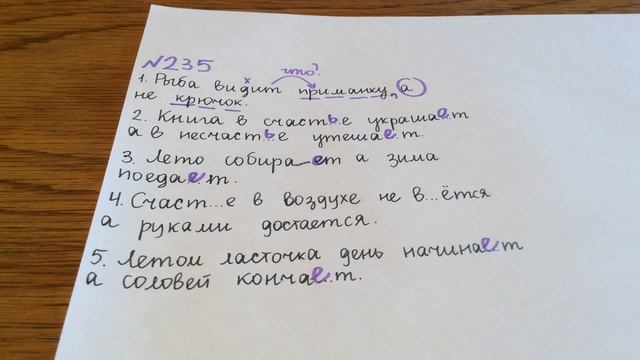 №235
что?
1. Рыба видит приманку, а
не крючок.
2. Книга в счастье украшает
а в несчастье утешает.
3. Лето собирает а зима
поедает.
4. Счаст...е в воздухе не в...ётся
а руками достается.
5. Летом ласточка день начинает
а соловей кончает.